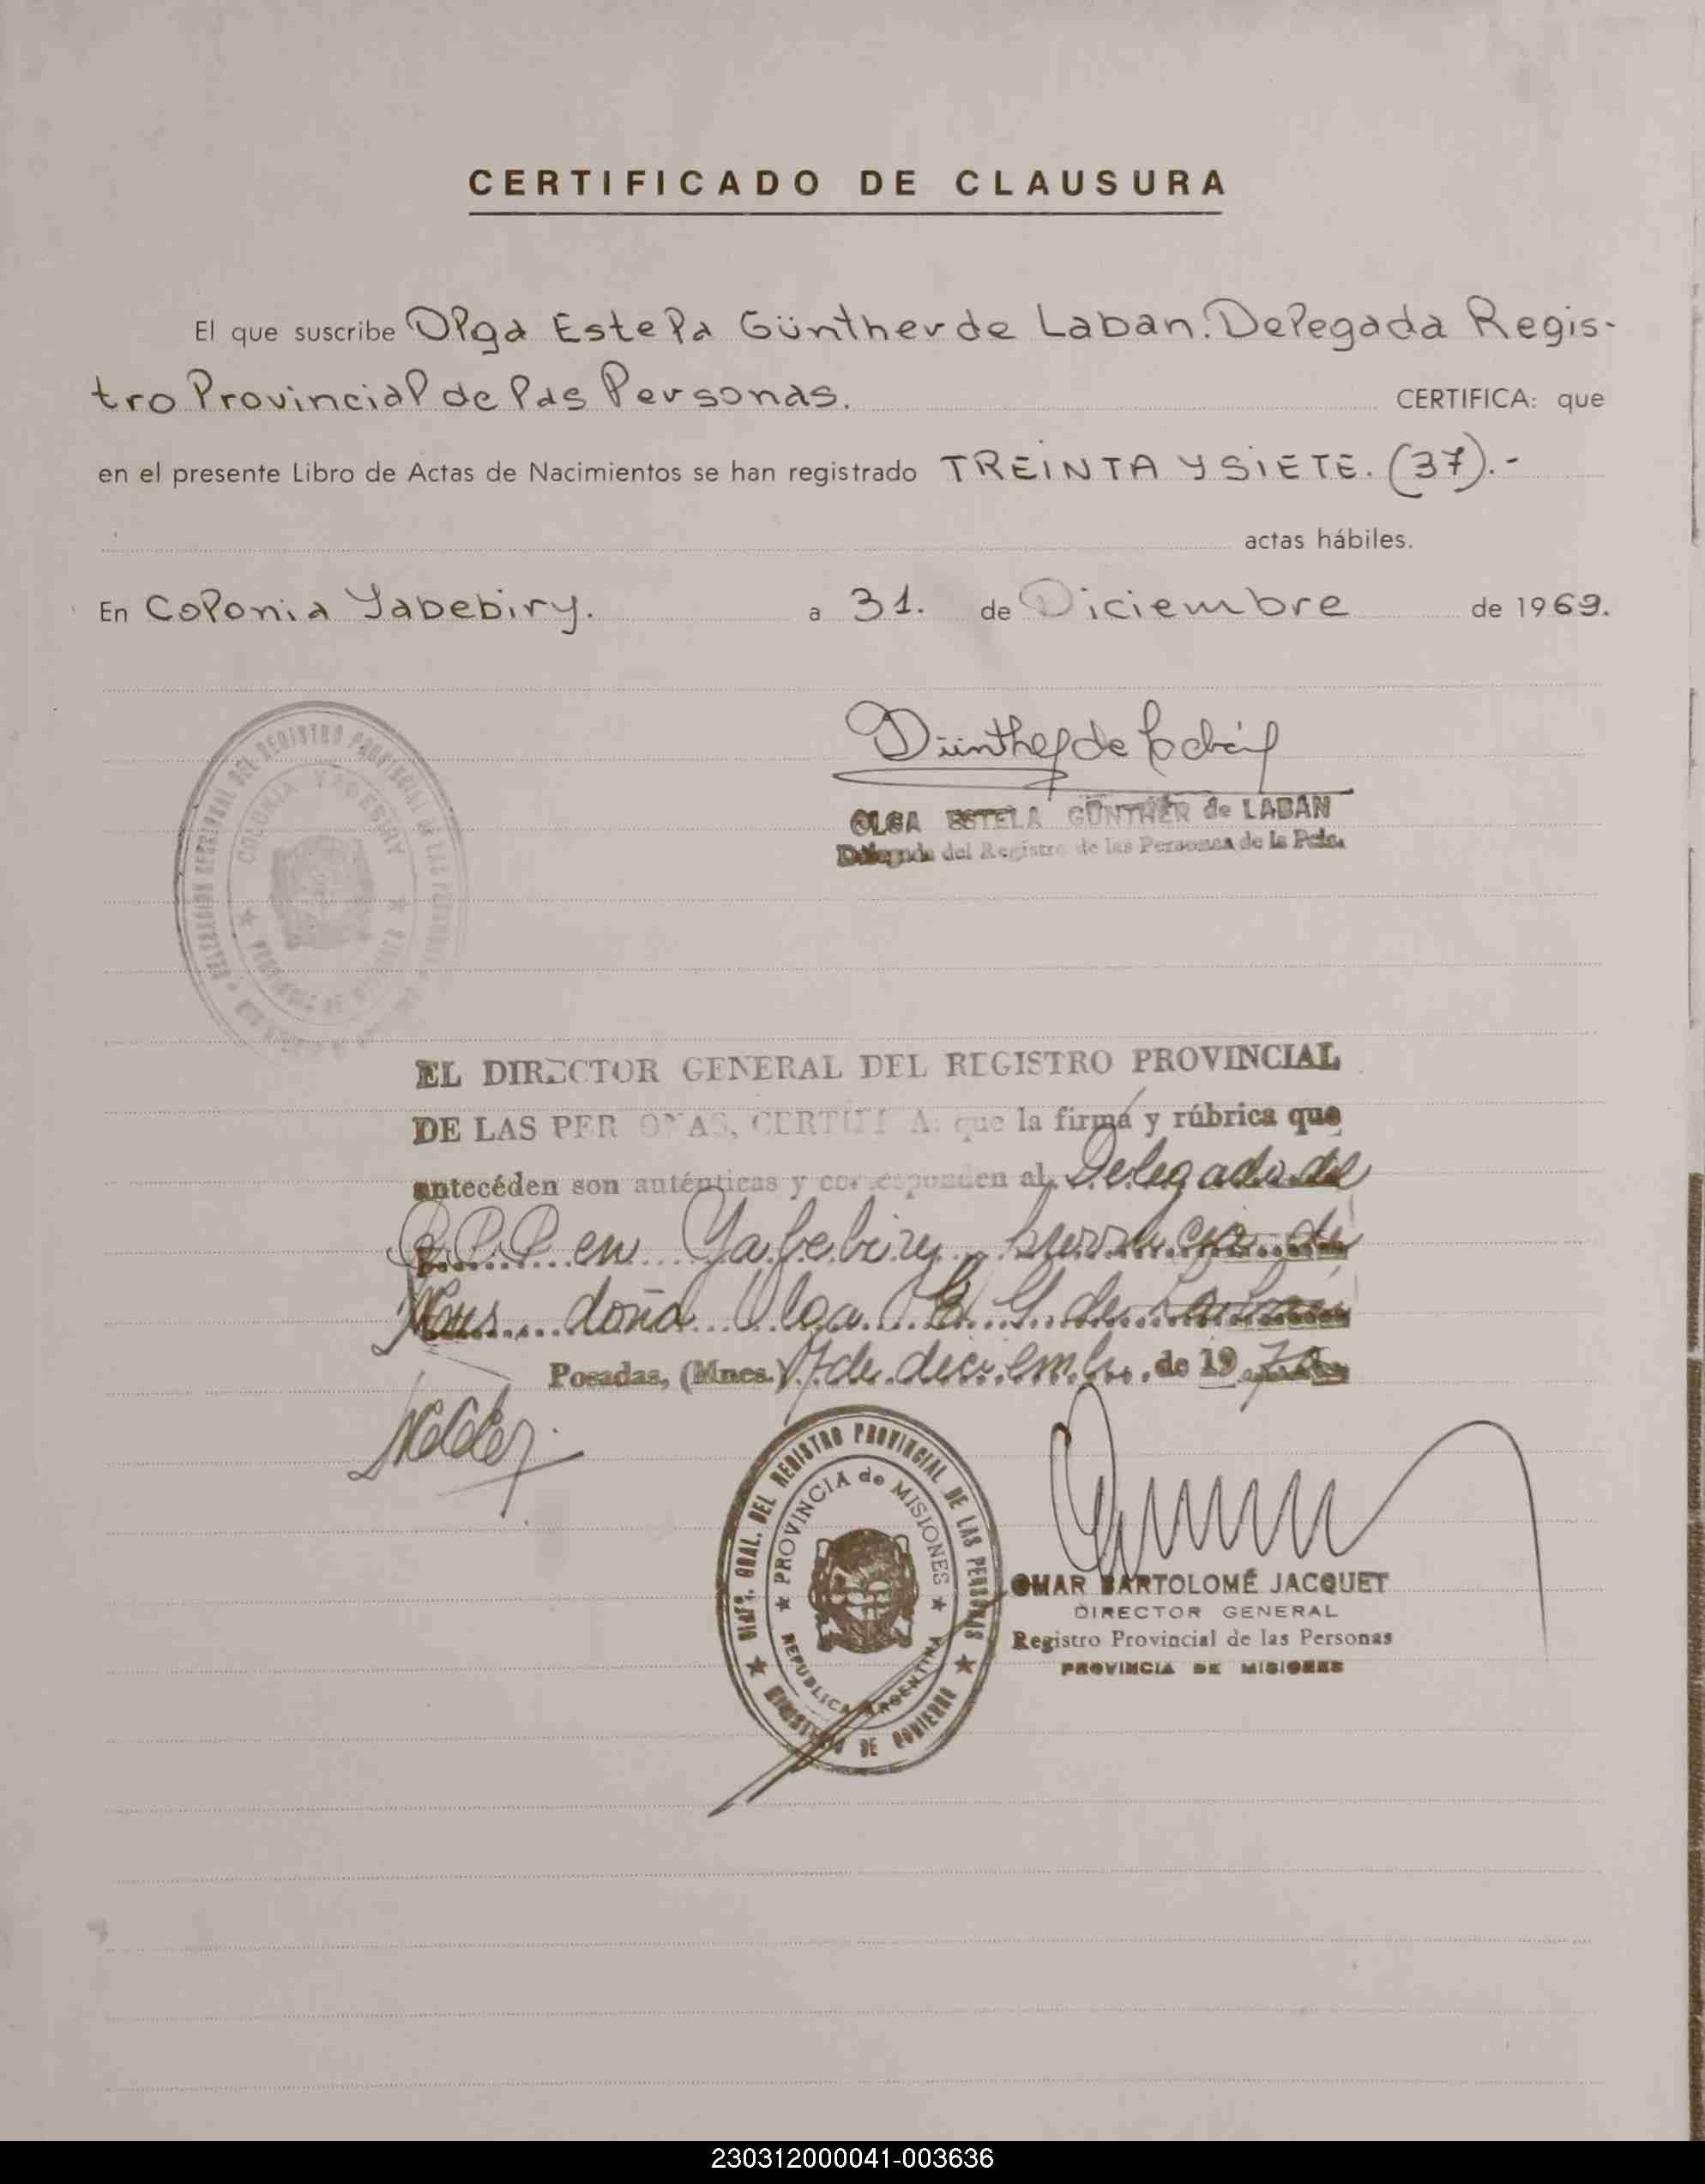 CERTIFICADO DE CLAUSURA
El que suscribe Olga Estela Günther de Laban. Delegada Regis-
tro Provincial de las Personas. CERTIFICA: que
en el presente Libro de Actas de Nacimientos se han registrado TREINTA Y SIETE. (37).-
actas hábiles.
En Colonia Yabebiry. a 31. de Diciembre de 1969.
Günther de Labán
OLGA ESTELA GÜNTHER de LABAN
Delegada del Registro de las Personas de la Pcia.
DELEGACION SECCIONAL DEL REGISTRO PROVINCIAL DE LAS PERSONAS
COLONIA YABEBIRY
★ PROVINCIA DE MISIONES ★
EL DIRECTOR GENERAL DEL REGISTRO PROVINCIAL
DE LAS PER ONAS, CERTIFI A: que la firma y rúbrica que
antecéden son auténticas y corresponden al Delegado del
R.P.P. en Yabebiry, provincia de
Mnes. doña Olga E. G. de Laban
Posadas, (Mnes.) 17 de diciembre de 19
DIREC. GRAL. DEL REGISTRO PROVINCIAL DE LAS PERSONAS
★ PROVINCIA de MISIONES ★
REPUBLICA ARGENTINA
★ MINISTERIO DE GOBIERNO ★
OMAR BARTOLOMÉ JACQUET
DIRECTOR GENERAL
Registro Provincial de las Personas
PROVINCIA DE MISIONES
230312000041-003636